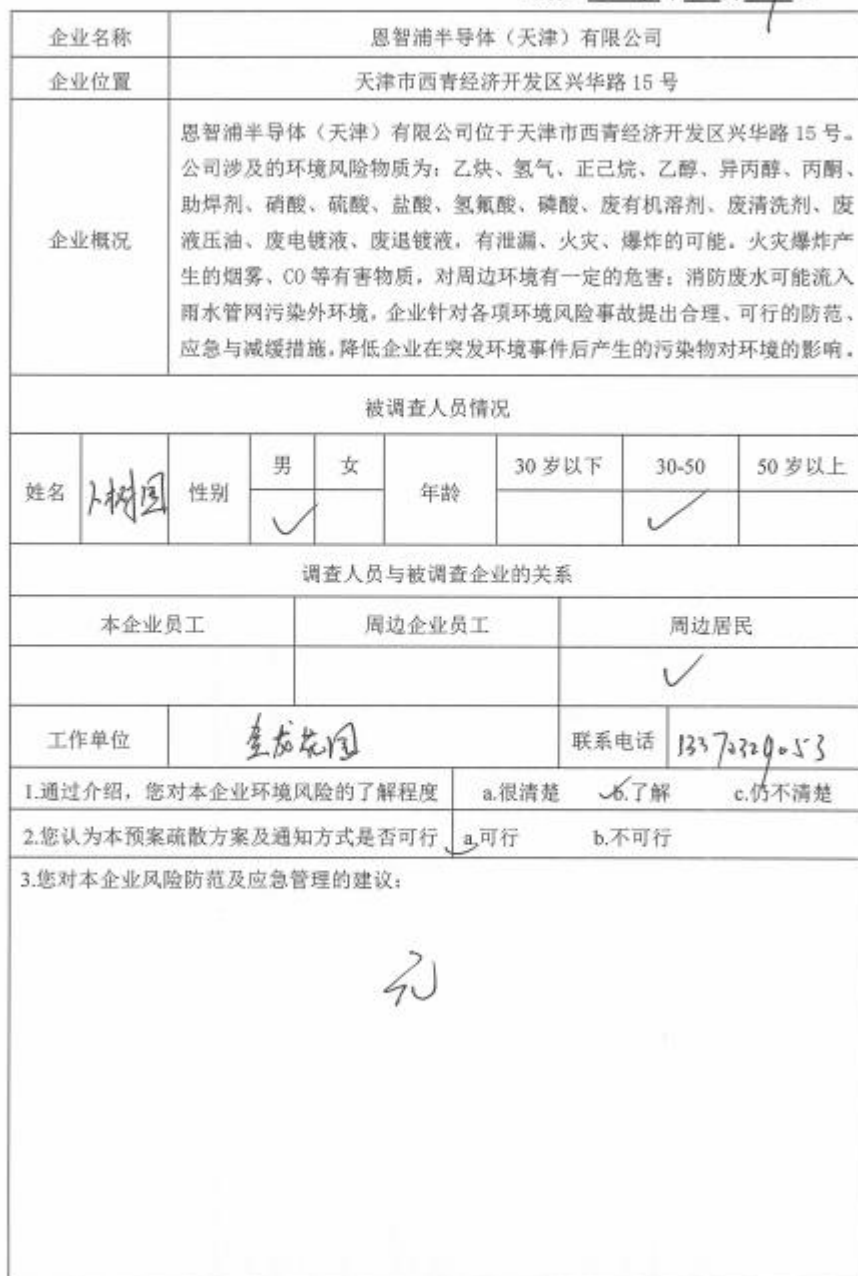 企业名称 恩智浦半导体（天津）有限公司
企业位置 天津市西青经济开发区兴华路 15 号
企业概况
恩智浦半导体（天津）有限公司位于天津市西青经济开发区兴华路 15 号。
公司涉及的环境风险物质为：乙炔、氢气、正己烷、乙醇、异丙醇、丙酮、
助焊剂、硝酸、硫酸、盐酸、氢氟酸、磷酸、废有机溶剂、废清洗剂、废
液压油、废电镀液、废退镀液，有泄漏、火灾、爆炸的可能。火灾爆炸产
生的烟雾、CO 等有害物质，对周边环境有一定的危害；消防废水可能流入
雨水管网污染外环境，企业针对各项环境风险事故提出合理、可行的防范、
应急与减缓措施，降低企业在突发环境事件后产生的污染物对环境的影响。
被调查人员情况
姓名 性别 男 女 年龄 30 岁以下 30-50 50 岁以上
调查人员与被调查企业的关系
本企业员工 周边企业员工 周边居民
工作单位 联系电话
1.通过介绍，您对本企业环境风险的了解程度 a.很清楚 b.了解 c.仍不清楚
2.您认为本预案疏散方案及通知方式是否可行 a.可行 b.不可行
3.您对本企业风险防范及应急管理的建议：
无